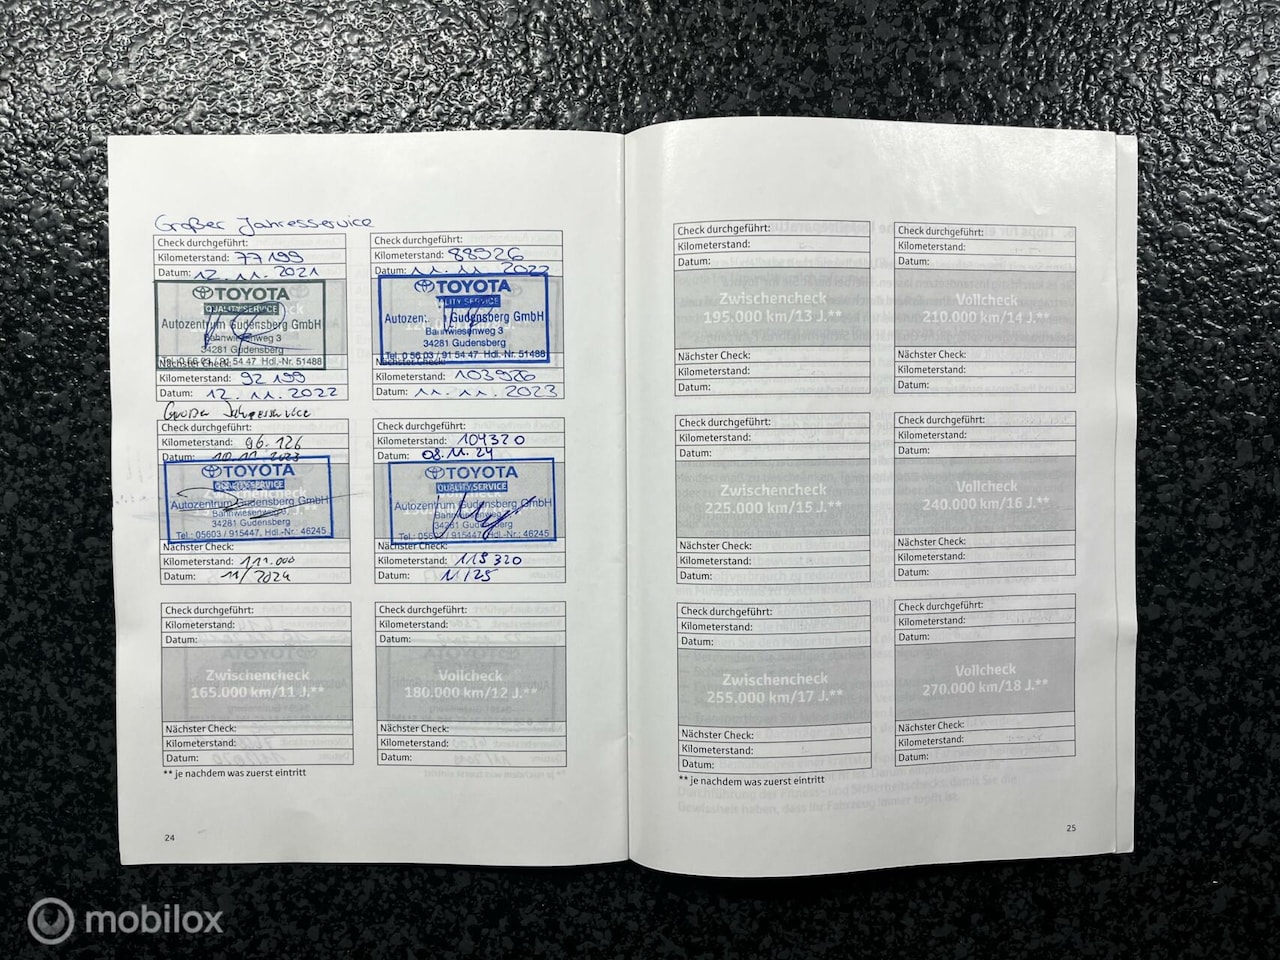 Großer Jahresservice
Check durchgeführt:
Kilometerstand: 77199
Datum: 12.11.2021
TOYOTA
QUALITY SERVICE
Autozentrum Gudensberg GmbH
Bahnwiesenweg 3
34281 Gudensberg
Tel. 0 56 03 / 91 54 47 Hdl.-Nr. 51488
Nächster Check:
Kilometerstand: 92 199
Datum: 12.11.2022
Check durchgeführt:
Kilometerstand: 88926
Datum: 11.11.2022
TOYOTA
QUALITY SERVICE
Gudensberg GmbH
Bahnwiesenweg 3
34281 Gudensberg
Tel. 0 56 03 / 91 54 47 Hdl.-Nr. 51488
Nächster Check:
Kilometerstand: 103926
Datum: 11.11.2023
Großer Jahresservice
Check durchgeführt:
Kilometerstand: 96.126
Datum: 10.11.2023
TOYOTA
QUALITY SERVICE
Autozentrum Gudensberg GmbH
Bahnwiesenweg 3
34281 Gudensberg
Tel.: 05603 / 915447, Hdl.-Nr.: 46245
Nächster Check:
Kilometerstand: 111.000
Datum: 11/2024
Check durchgeführt:
Kilometerstand: 104320
Datum: 08.11.24
TOYOTA
QUALITY SERVICE
Autozentrum Gudensberg GmbH
Bahnwiesenweg
34281 Gudensberg
Tel.: 05603 / 915447, Hdl.-Nr.: 46245
Nächster Check:
Kilometerstand: 119320
Datum: 11/25
Check durchgeführt:
Kilometerstand:
Datum:
Zwischencheck
165.000 km/11 J.**
Nächster Check:
Kilometerstand:
Datum:
Check durchgeführt:
Kilometerstand:
Datum:
Vollcheck
180.000 km/12 J.**
Nächster Check:
Kilometerstand:
Datum:
** je nachdem was zuerst eintritt
24
Check durchgeführt:
Kilometerstand:
Datum:
Zwischencheck
195.000 km/13 J.**
Nächster Check:
Kilometerstand:
Datum:
Check durchgeführt:
Kilometerstand:
Datum:
Vollcheck
210.000 km/14 J.**
Nächster Check:
Kilometerstand:
Datum:
Check durchgeführt:
Kilometerstand:
Datum:
Zwischencheck
225.000 km/15 J.**
Nächster Check:
Kilometerstand:
Datum:
Check durchgeführt:
Kilometerstand:
Datum:
Vollcheck
240.000 km/16 J.**
Nächster Check:
Kilometerstand:
Datum:
Check durchgeführt:
Kilometerstand:
Datum:
Zwischencheck
255.000 km/17 J.**
Nächster Check:
Kilometerstand:
Datum:
Check durchgeführt:
Kilometerstand:
Datum:
Vollcheck
270.000 km/18 J.**
Nächster Check:
Kilometerstand:
Datum:
** je nachdem was zuerst eintritt
25
mobilox